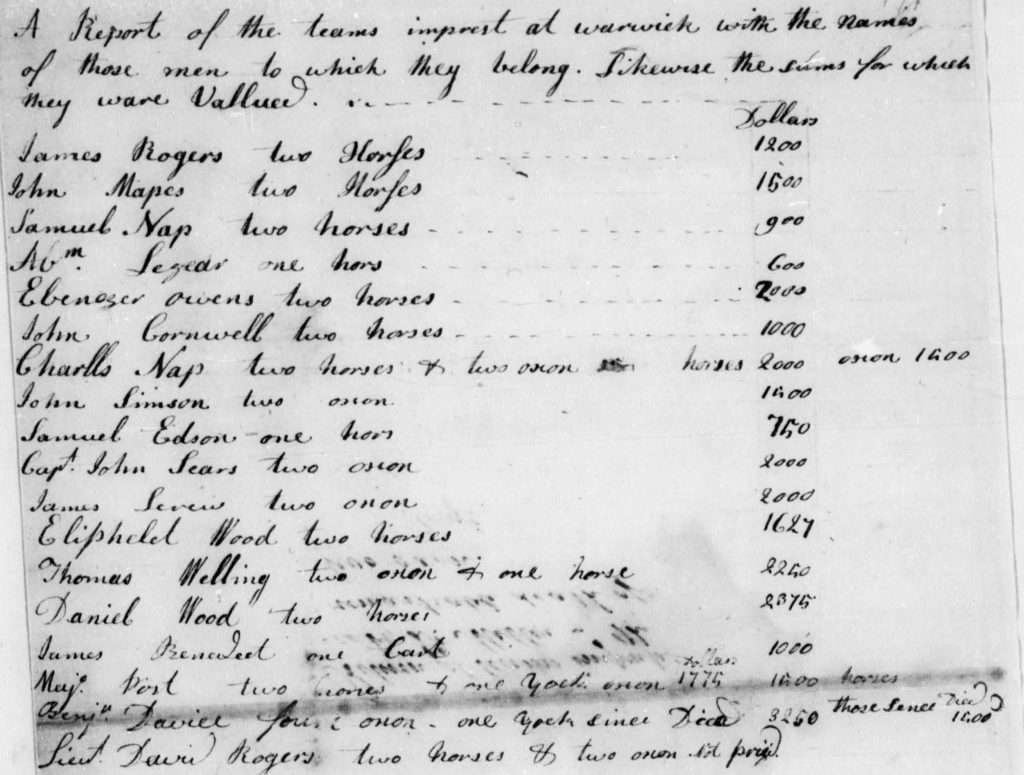 A Report of the teams imprest at warwick with the names
of those men to which they belong. Likewise the sums for which
they ware Vallued.
Dollars
James Rogers two Horses 1200
John Mapes two Horses 1500
Samuel Nap two horses 900
Abm. Legear one hors 600
Ebenozer owens two horses 2000
John Cornwell two horses 1000
Charlls Nap two horses & two oxion horses 2000 oxion 1500
John Simson two oxion 1500
Samuel Edson one hors 750
Capt. John Sears two oxion 2000
James two oxion 2000
Eliphelet Wood two horses 1627
Thomas Welling two oxion & one horse 2250
Daniel Wood two horses 2375
James Benedect one Cart 1000
Majr. Post two horses & one Yock oxion Dollars 1775 1500 horses
Benjn. Daviee four oxon one yock since Died 3250 those sence Died 1500
Lieut. David Rogers two horses & two oxon